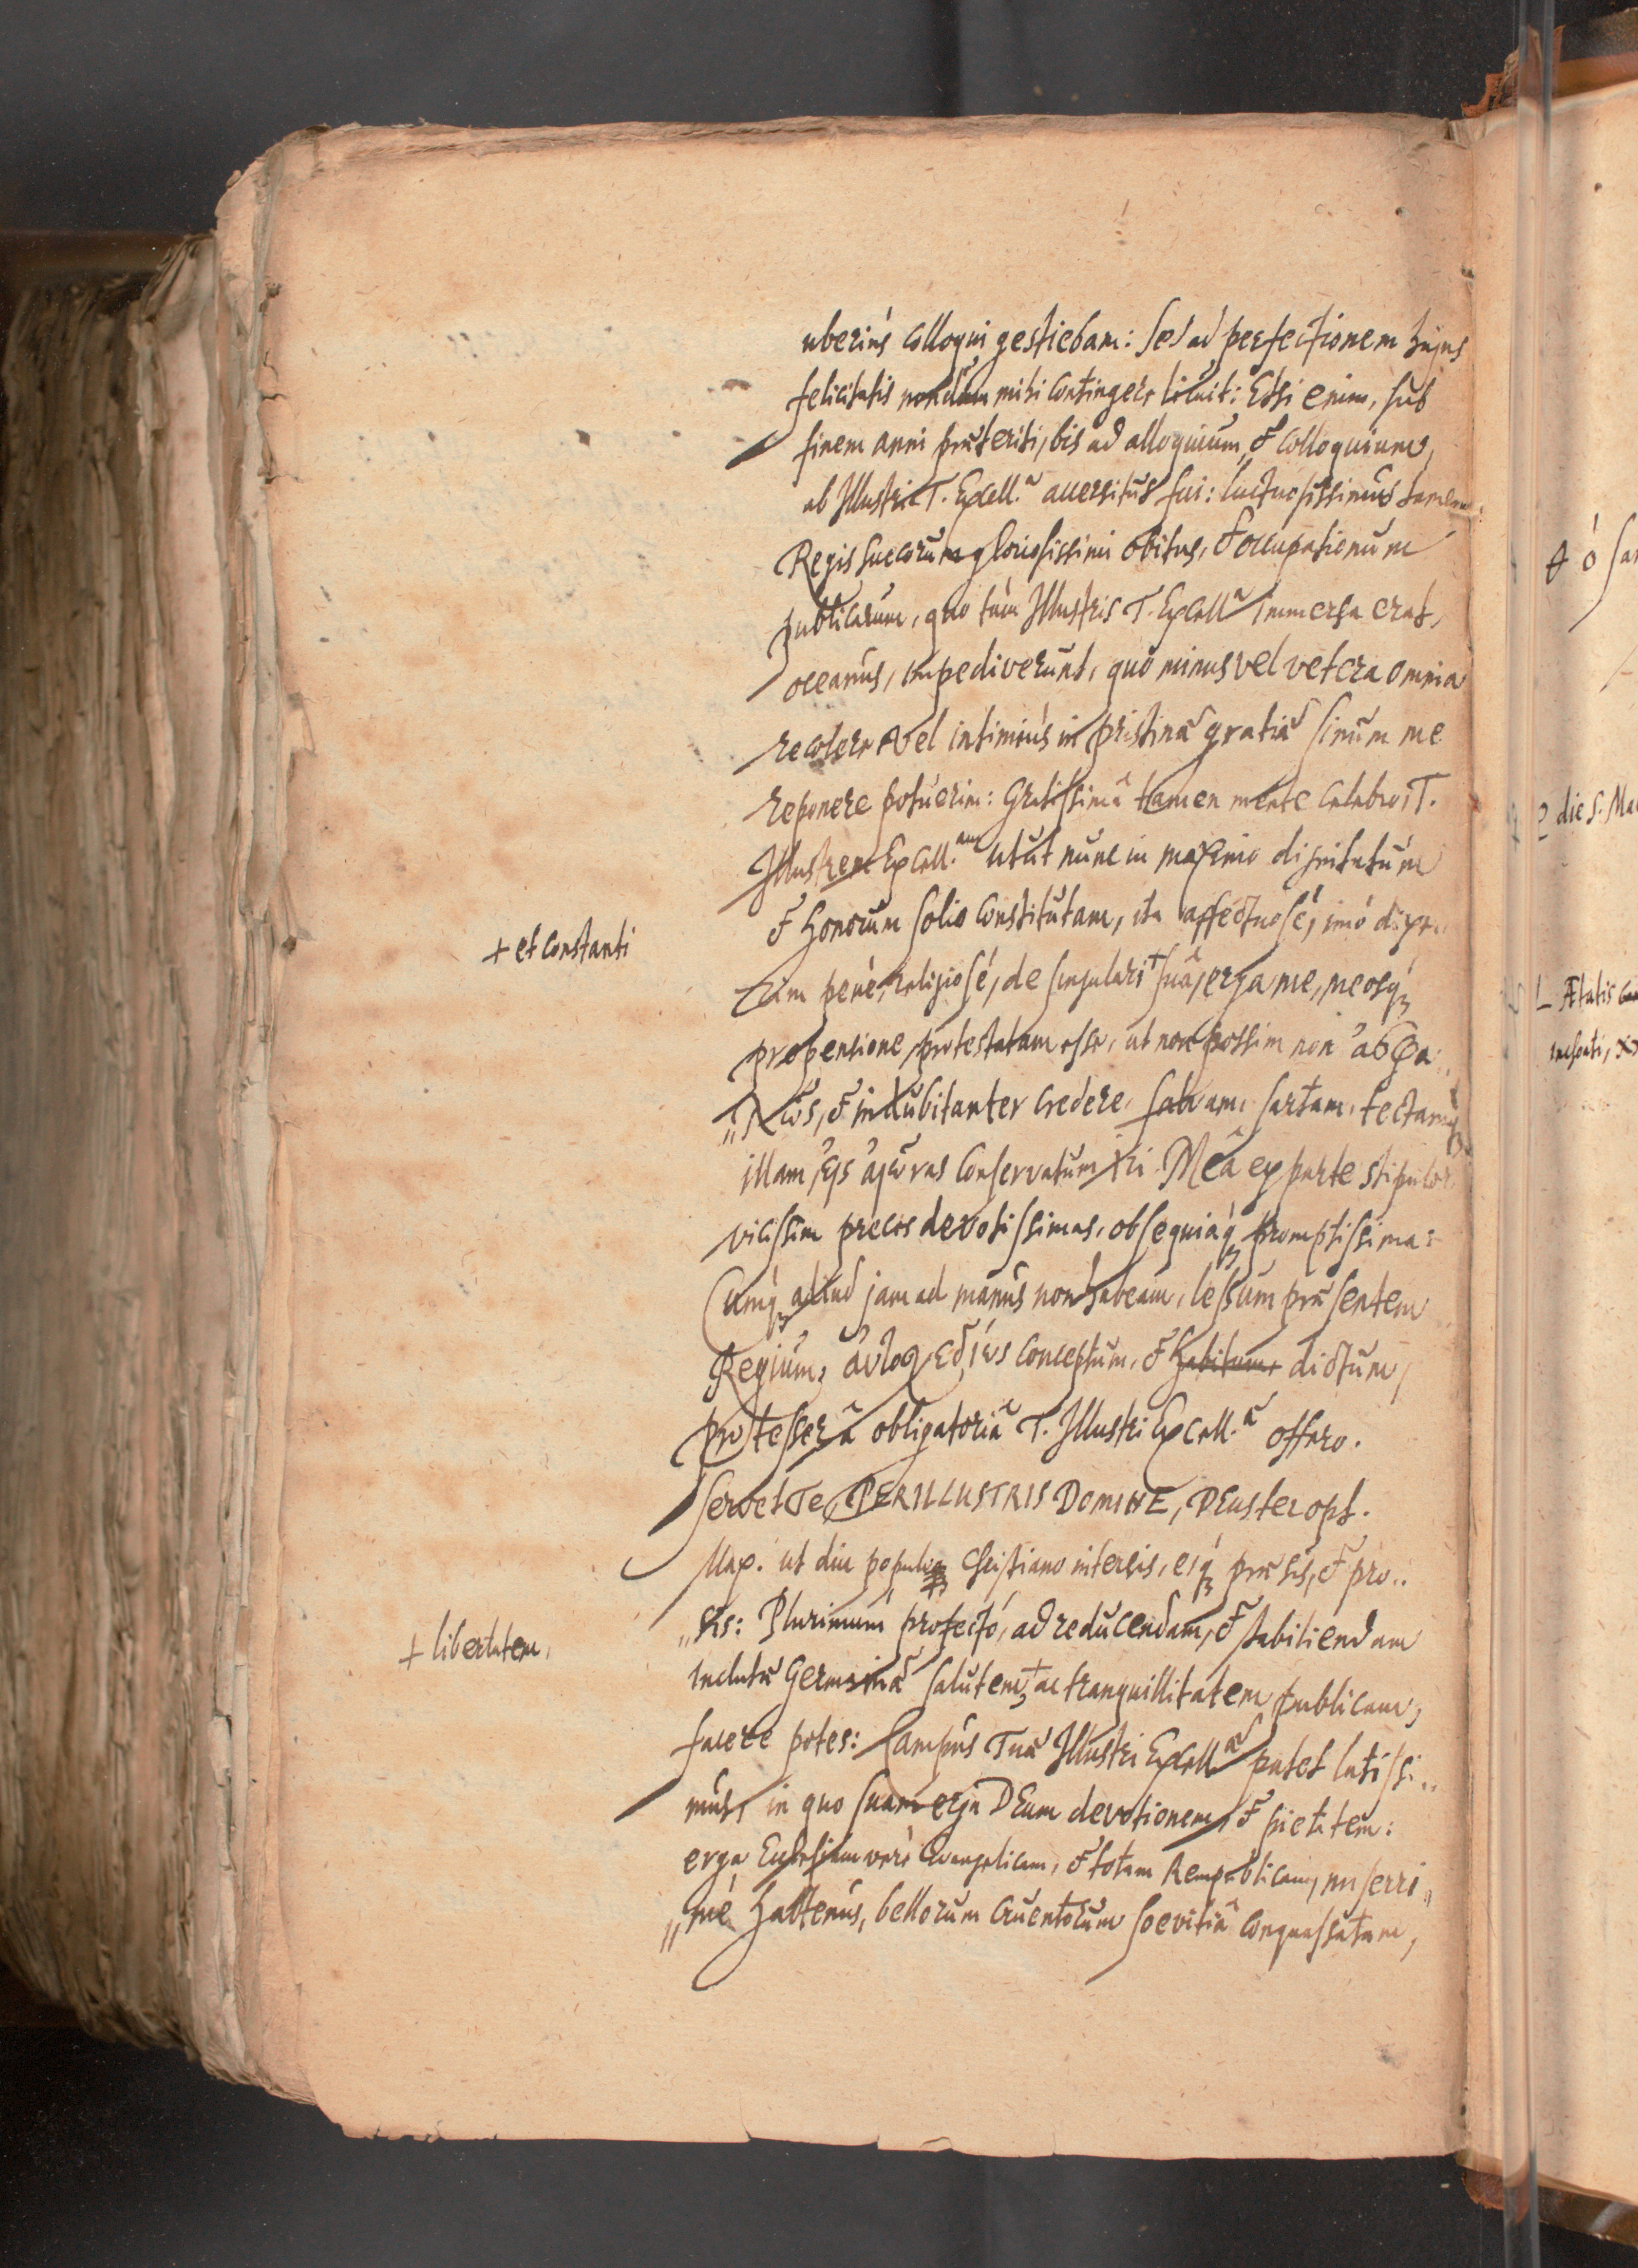 uberiùs colloqui gestiebam: sed ad perfectionem hujus
felicitatis nondum mihi contingere licuit: Etsi enim, sub
finem anni præteriti, bis ad alloquium, & colloquium,
ab Illustri T. Excell.â accersitus fui: luctuosissimus tamen
Regis Suecorum gloriosissimi obitus, & occupationum
publicarum, quo tùm Illustris T. Excell.ª immersa erat,
oceanus, impediverunt, quò minus vel vetera omnia
recolere vel intimiùs in pristinæ gratiæ sinum me
reponere potuerim: Gratissimâ tamen mente T.
Illustrem Excell.am utut nunc in maximo dignitatum
& honorum solio constitutam, ita affectuosè, imò dixe..
rim penè, religiosè, de singulari + suâ, erga me, meosq́3
propensione protestatam esse, ut non possim non
& indubitanter credere, salvam, sartam, tectamq́3
illam, conservatum iri. Meâ ex parte stipulor
vicissim preces devotissimas, obsequiaq́3 promptissima:
Cumq́3 aliud jam ad manus non habeam, lessum præsentem
Regium, conceptum, & habitum, dictum,
pro tesserâ obligatoriâ T. Illustri Excell.æ offero.
Servet Te, PERILLUSTRIS DOMINE, DEus ter opt.
Max. ut diu populo Christiano intersis, eiq́3 præsis, & pro..
„sis: Plurimum profectò, ad reducendam, & stabiliendam
inclutæ Germaniæ salutem, + ac tranquillitatem publicam,
facere potes: Campus Tuæ Illustri Excell.æ patet latissi..
mus, in quo suam erga DEum devotionem, & pietatem:
erga Ecclesiam verè Evangelicam, & totam Rempublicam, miserri„
„mè hactenus, bellorum cruentorum sœvitiâ conquassatam,
+ et constanti
+ libertatem,
die S. Ma
Ætatis